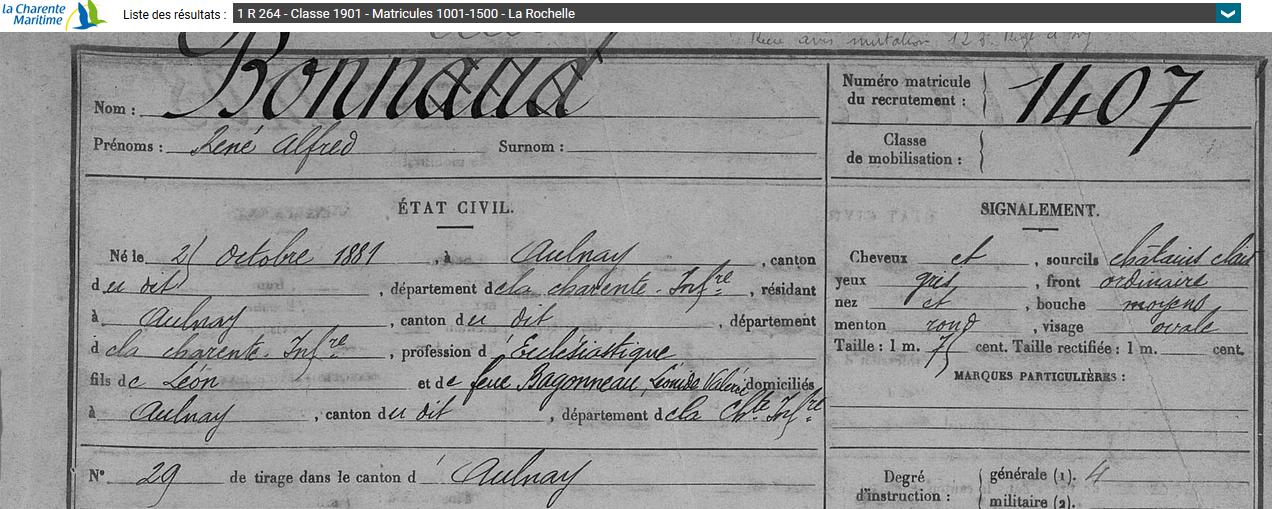 la Charente
Maritime
Liste des résultats : 1 R 264 - Classe 1901 - Matricules 1001-1500 - La Rochelle
Nom : Bonnaud
Prénoms : René Alfred Surnom :
Numéro matricule
du recrutement : 1407
Classe
de mobilisation :
ÉTAT CIVIL.
Né le 25 octobre 1881, à Aulnay, canton
du dit, département de la charente-Infre, résidant
à Aulnay, canton du dit, département
de la charente-Infre, profession d'Ecclésiastique
fils de Léon et de feue Bagonneau, Léonide Valérie domiciliés
à Aulnay, canton du dit, département de la Chte Infre
N° 29 de tirage dans le canton d'Aulnay
SIGNALEMENT.
Cheveux et, sourcils châtains clair
yeux gris, front ordinaire
nez et, bouche moyens
menton rond, visage ovale
Taille : 1 m. 75 cent. Taille rectifiée : 1 m. cent.
MARQUES PARTICULIÈRES :
Degré
d'instruction :
générale (1). 4
militaire (2).